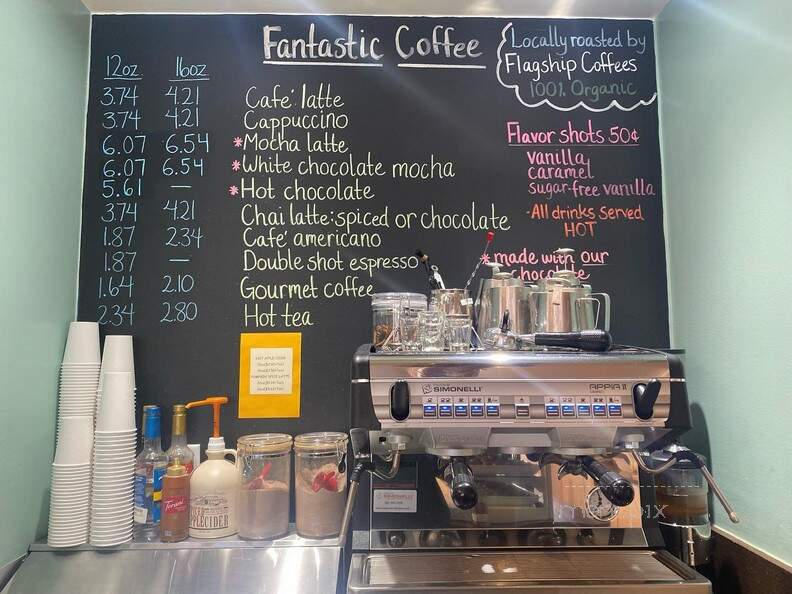 Fantastic Coffee
12oz. 16oz
3.74 4.21 Café latte
3.74 4.21 Cappuccino
6.07 6.54 *Mocha latte
6.07 6.54 *White chocolate mocha
5.61 — *Hot chocolate
3.74 4.21 Chai latte: spiced or chocolate
1.87 2.34 Café americano
1.87 — Double shot espresso
1.64 2.10 Gourmet coffee
2.34 2.80 Hot tea
Locally roasted by
Flagship Coffees
100% Organic
Flavor shots 50¢
vanilla
caramel
sugar-free vanilla
-All drinks served
HOT
*made with our
chocolate
HOT APPLE CIDER
PUMPKIN SPICE LATTE
SIMONELLI
APPIA II
Torani
APPLE CIDER
SIMONELLI